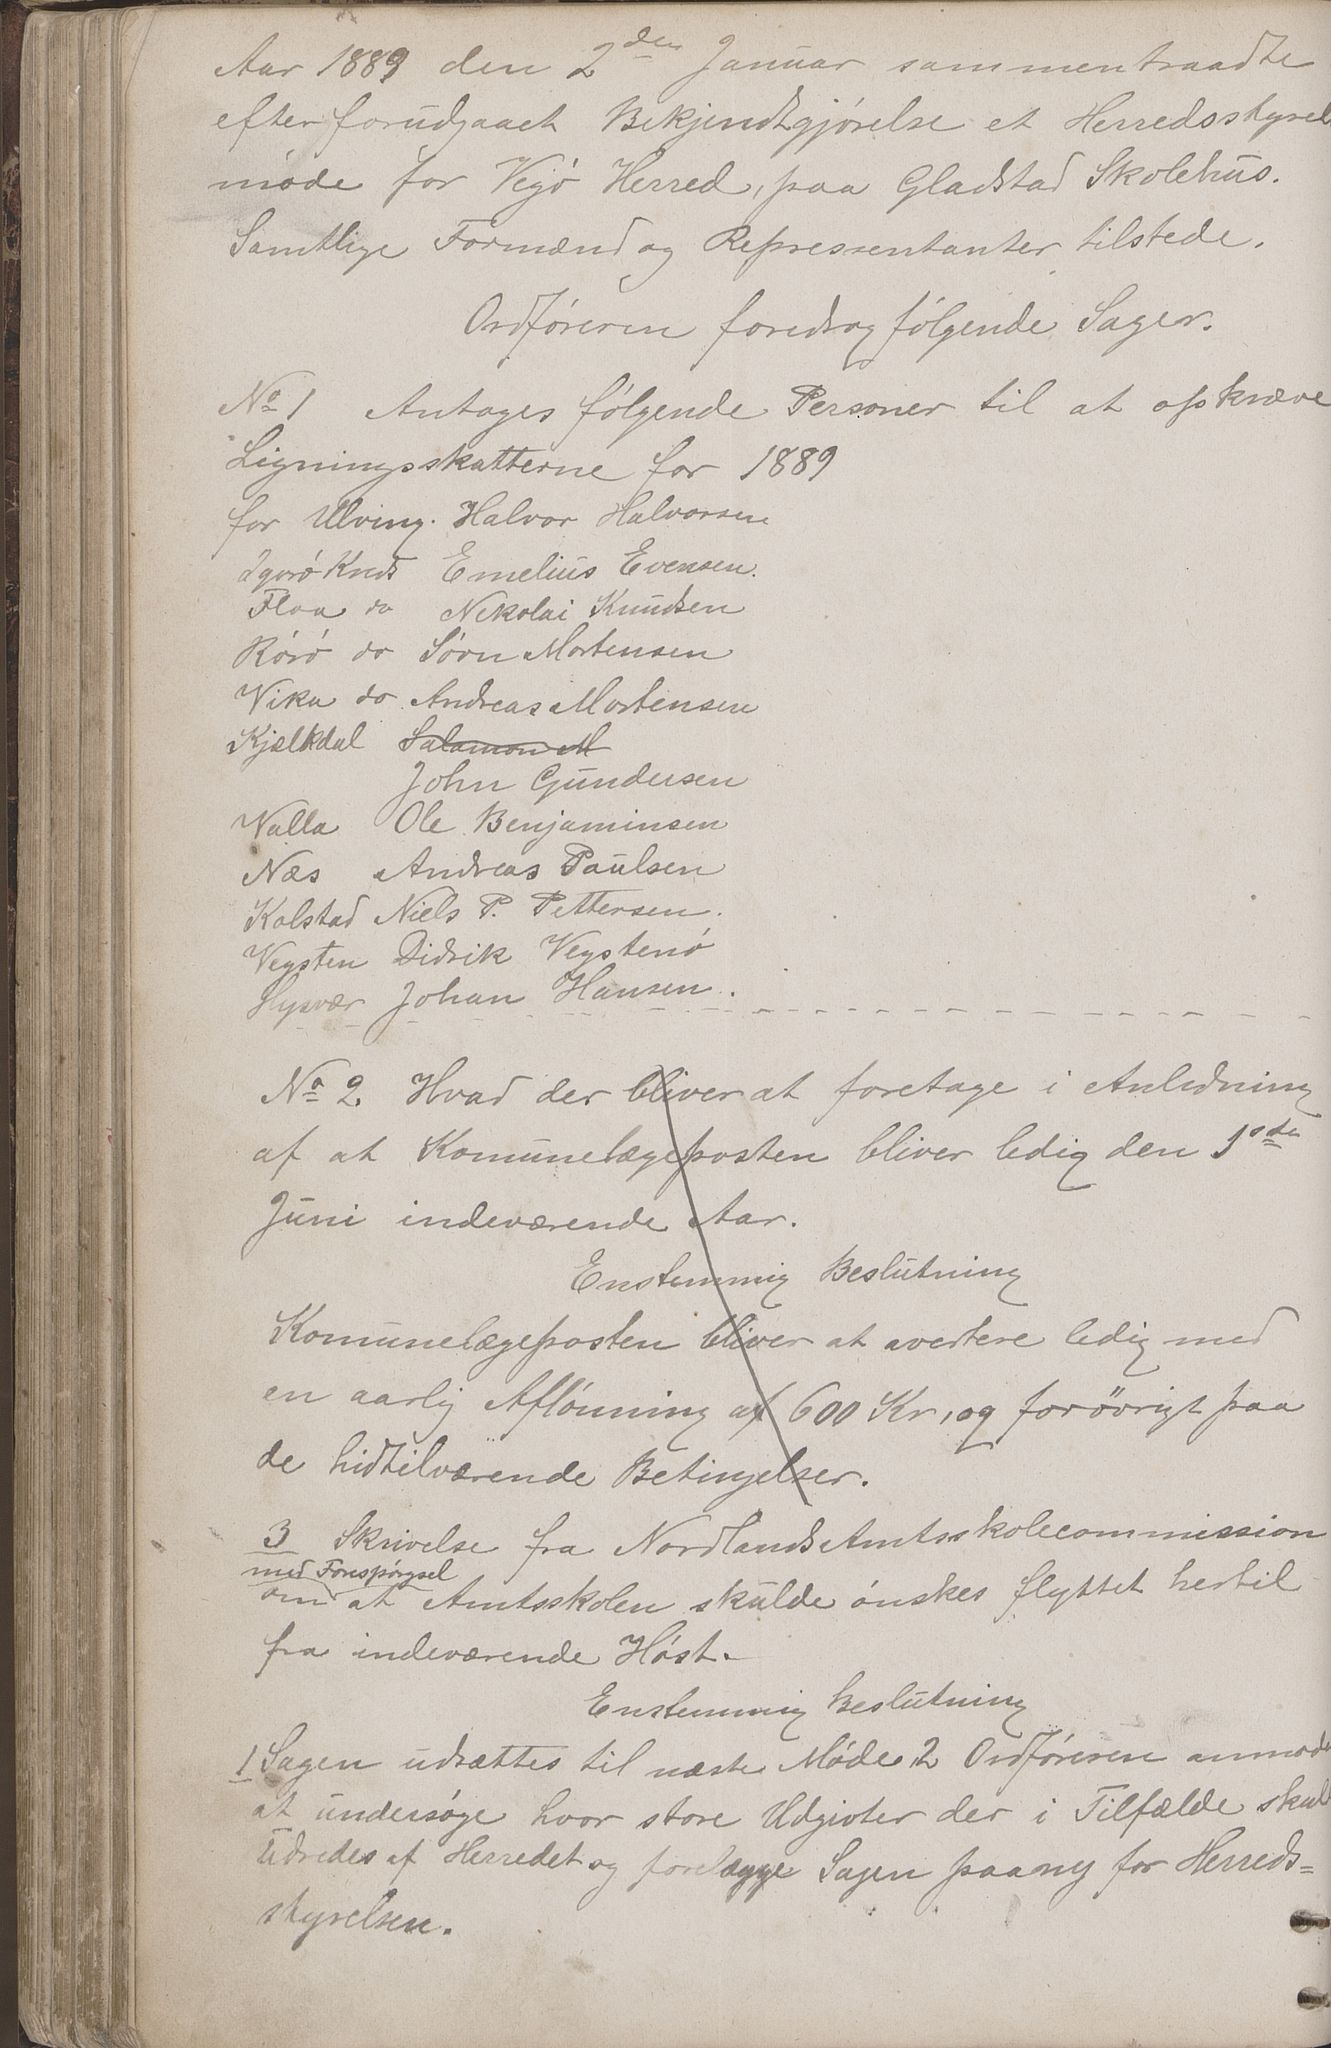 Aar 1889 den 2den Januar sammentraadte
efter forudgaaet Bekjendtgjørelse et Herredsstyrel
møde for Vegø Herred, paa Gladstad Skolehus.
Samtlige Formænd og Repressentanter tilstede.
Ordføreren foredrog følgende Sager.
No 1 Antages følgende Personer til at opkræve
Ligningsskatterne for 1889
for Ulving. Halvor Halvorsen
Emelius Evensen.
Floa do Nekolai Knudsen
Rørø do Sørn Mortensen
Vika do Andreas Mortensen
Kjælkdal Salamon M
John Gundersen
Valla Ole Benjaminsen
Næs Andreas Paulsen
Kolstad Niels P. Pettersen.
Vegsten Didrik Vegstenø
Hysvær Johan Hansen.
No 2. Hvad der bliver at foretage i Anledning
af at Komunelægeposten bliver ledig den 1ste
Juni indeværende Aar.
Enstemmig Beslutning
Komunelægeposten bliver at avertere ledig med
en aarlig Aflønning af 600 Kr, og forøvrigt paa
de hidtilværende Betingelser.
3 Skrivelse fra Nordlands Amtsskolecommission
med Forespørgsel
om at Amtsskolen skulde ønskes flyttet hertil
fra indeværende Høst.
Enstemmig Beslutning
1 Sagen udsættes til næste Møde, 2 Ordføreren anmodes
at undersøge hvor store Udgivter der i Tilfælde skul
Udredes af Herredet og forelægge Sagen paany for Herreds=
styrelsen.